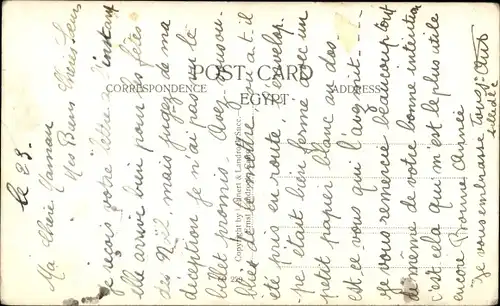 POST CARD
CORRESPONDENCE
ADDRESS
EGYPT.
Copyright by Lehnert & Landrock Succ.
le 23.
Ma chère Maman
Mes Biens Chères Sœurs
Je reçois votre lettre à l'instant
elle arrive bien pour les fêtes
des N. & 2. mais jugez de ma
déception je n'ai pas vu le
billet promis Avez vous ou-
blié de le mettre, ou a t-il
été pris en route, l'envelop-
pe était bien fermé avec un
petit papier blanc au dos
est ce vous qui l'avez mit. - - -
Je vous remercie beaucoup tout
de même de votre bonne intention
c'est cela qui m'est le plus utile
encore Bonne Année
Je vous embrasse Tous